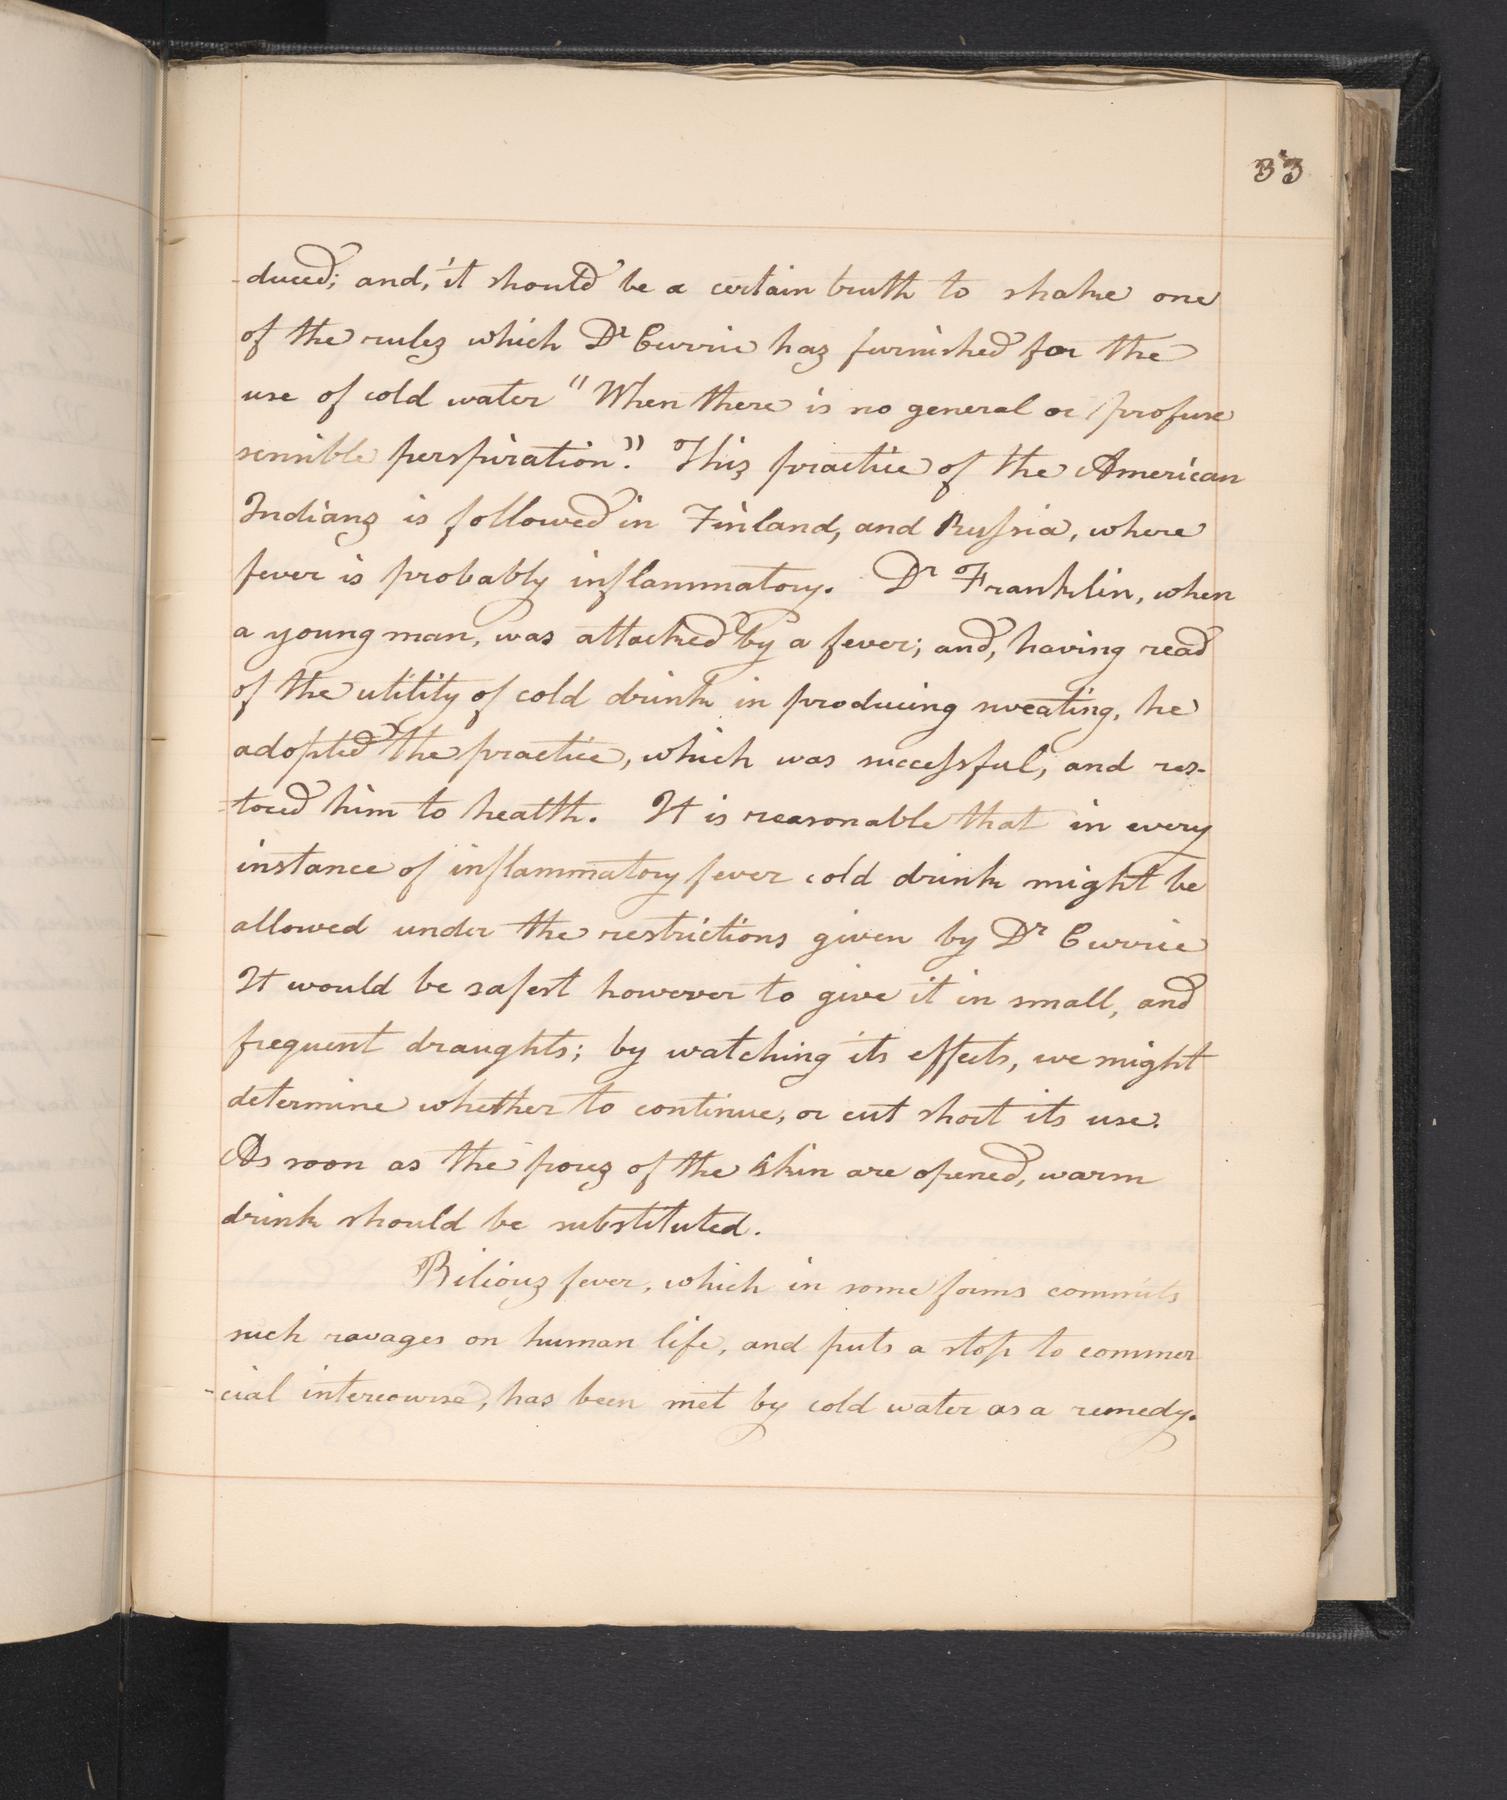 33
-duced; and, it should be a certain truth to shake one
of the rules which Dr Currie has furnished for the
use of cold water "When there is no general or profuse
sensible perspiration." This practice of the American
Indians is followed in Finland, and Russia, where
fever is probably inflammatory. Dr Franklin, when
a young man, was attacked by a fever; and, having read
of the utility of cold drink in producing sweating, he
adopted the practice, which was successful, and res-
-tored him to health. It is reasonable that in every
instance of inflammatory fever cold drink might be
allowed under the restrictions given by Dr Currie
It would be safest however to give it in small, and
frequent draughts; by watching its effects, we might
determine whether to continue, or cut short its use.
As soon as the pores of the skin are opened, warm
drink should be substituted.
Bilious fever, which in some forms commits
such ravages on human life, and puts a stop to commer
-cial intercourse, has been met by cold water as a remedy.